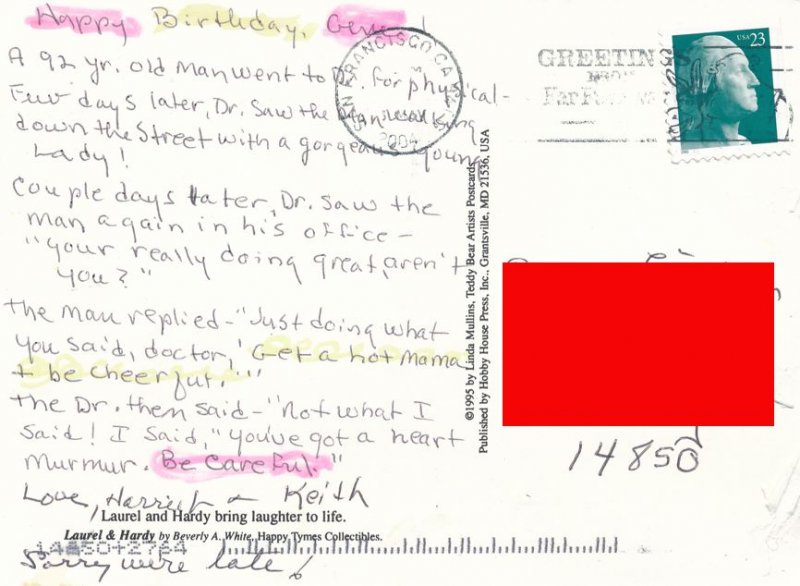 Happy Birthday, Gene!
A 92 yr. old man went to Dr. for physical-
Few days later, Dr. saw the man walking
down the street with a gorgeous young
Lady!
Couple days later, Dr. saw the
man again in his office -
"your really doing great, aren't
you?"
The man replied - "Just doing what
you said, doctor, 'Get a hot mama
+ be cheerful.'"
The Dr. then said - "Not what I
said! I said, "you've got a heart
murmur. Be careful."
Love, Harriet + Keith
Laurel and Hardy bring laughter to life.
Laurel & Hardy by Beverly A. White, Happy Tymes Collectibles.
14850+2764
Sorry were late!
©1995 by Linda Mullins, Teddy Bear Artists Postcards
Published by Hobby House Press, Inc., Grantsville, MD 21536, USA
SAN FRANCISCO CA
2004
GREETINGS
FROM
USA 23
14850